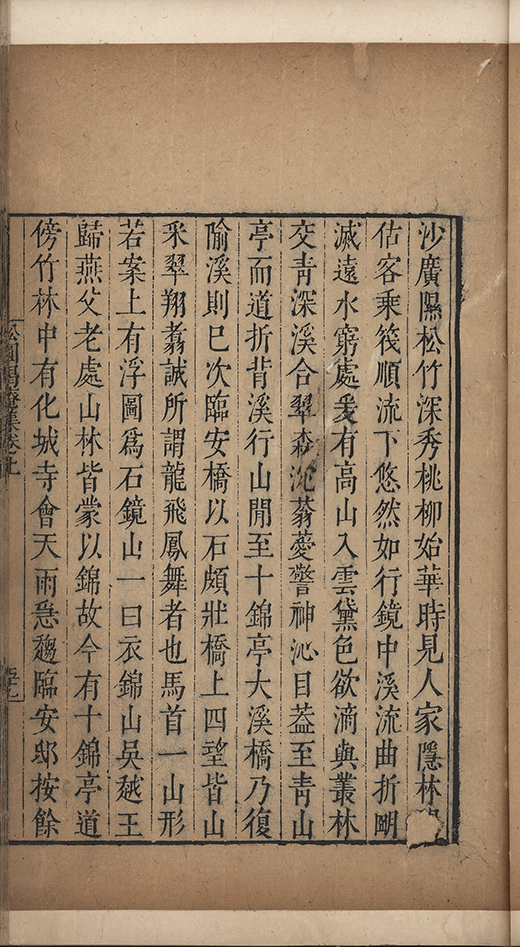 沙廣隰松竹深秀桃柳始華時見人家隱林
估客乘筏順流下悠然如行鏡中溪流曲折
滅遠水窮處爰有高山入雲黛色欲滴與叢林
交靑深溪合翠森沈蓊薆警神沁目葢至靑山
亭而道折背溪行山閒至十錦亭大溪橋乃復
隃溪則巳次臨安橋以石頗壯橋上四望皆山
釆翠翔翥誠所謂龍飛鳳舞者也馬首一山形
若案上有浮圖爲石鏡山一曰衣錦山吳越王
歸燕父老處山林皆蒙以錦故今有十錦亭道
傍竹林中有化城寺會天雨悬趨臨安邸按餘
松圓偈庵集卷上